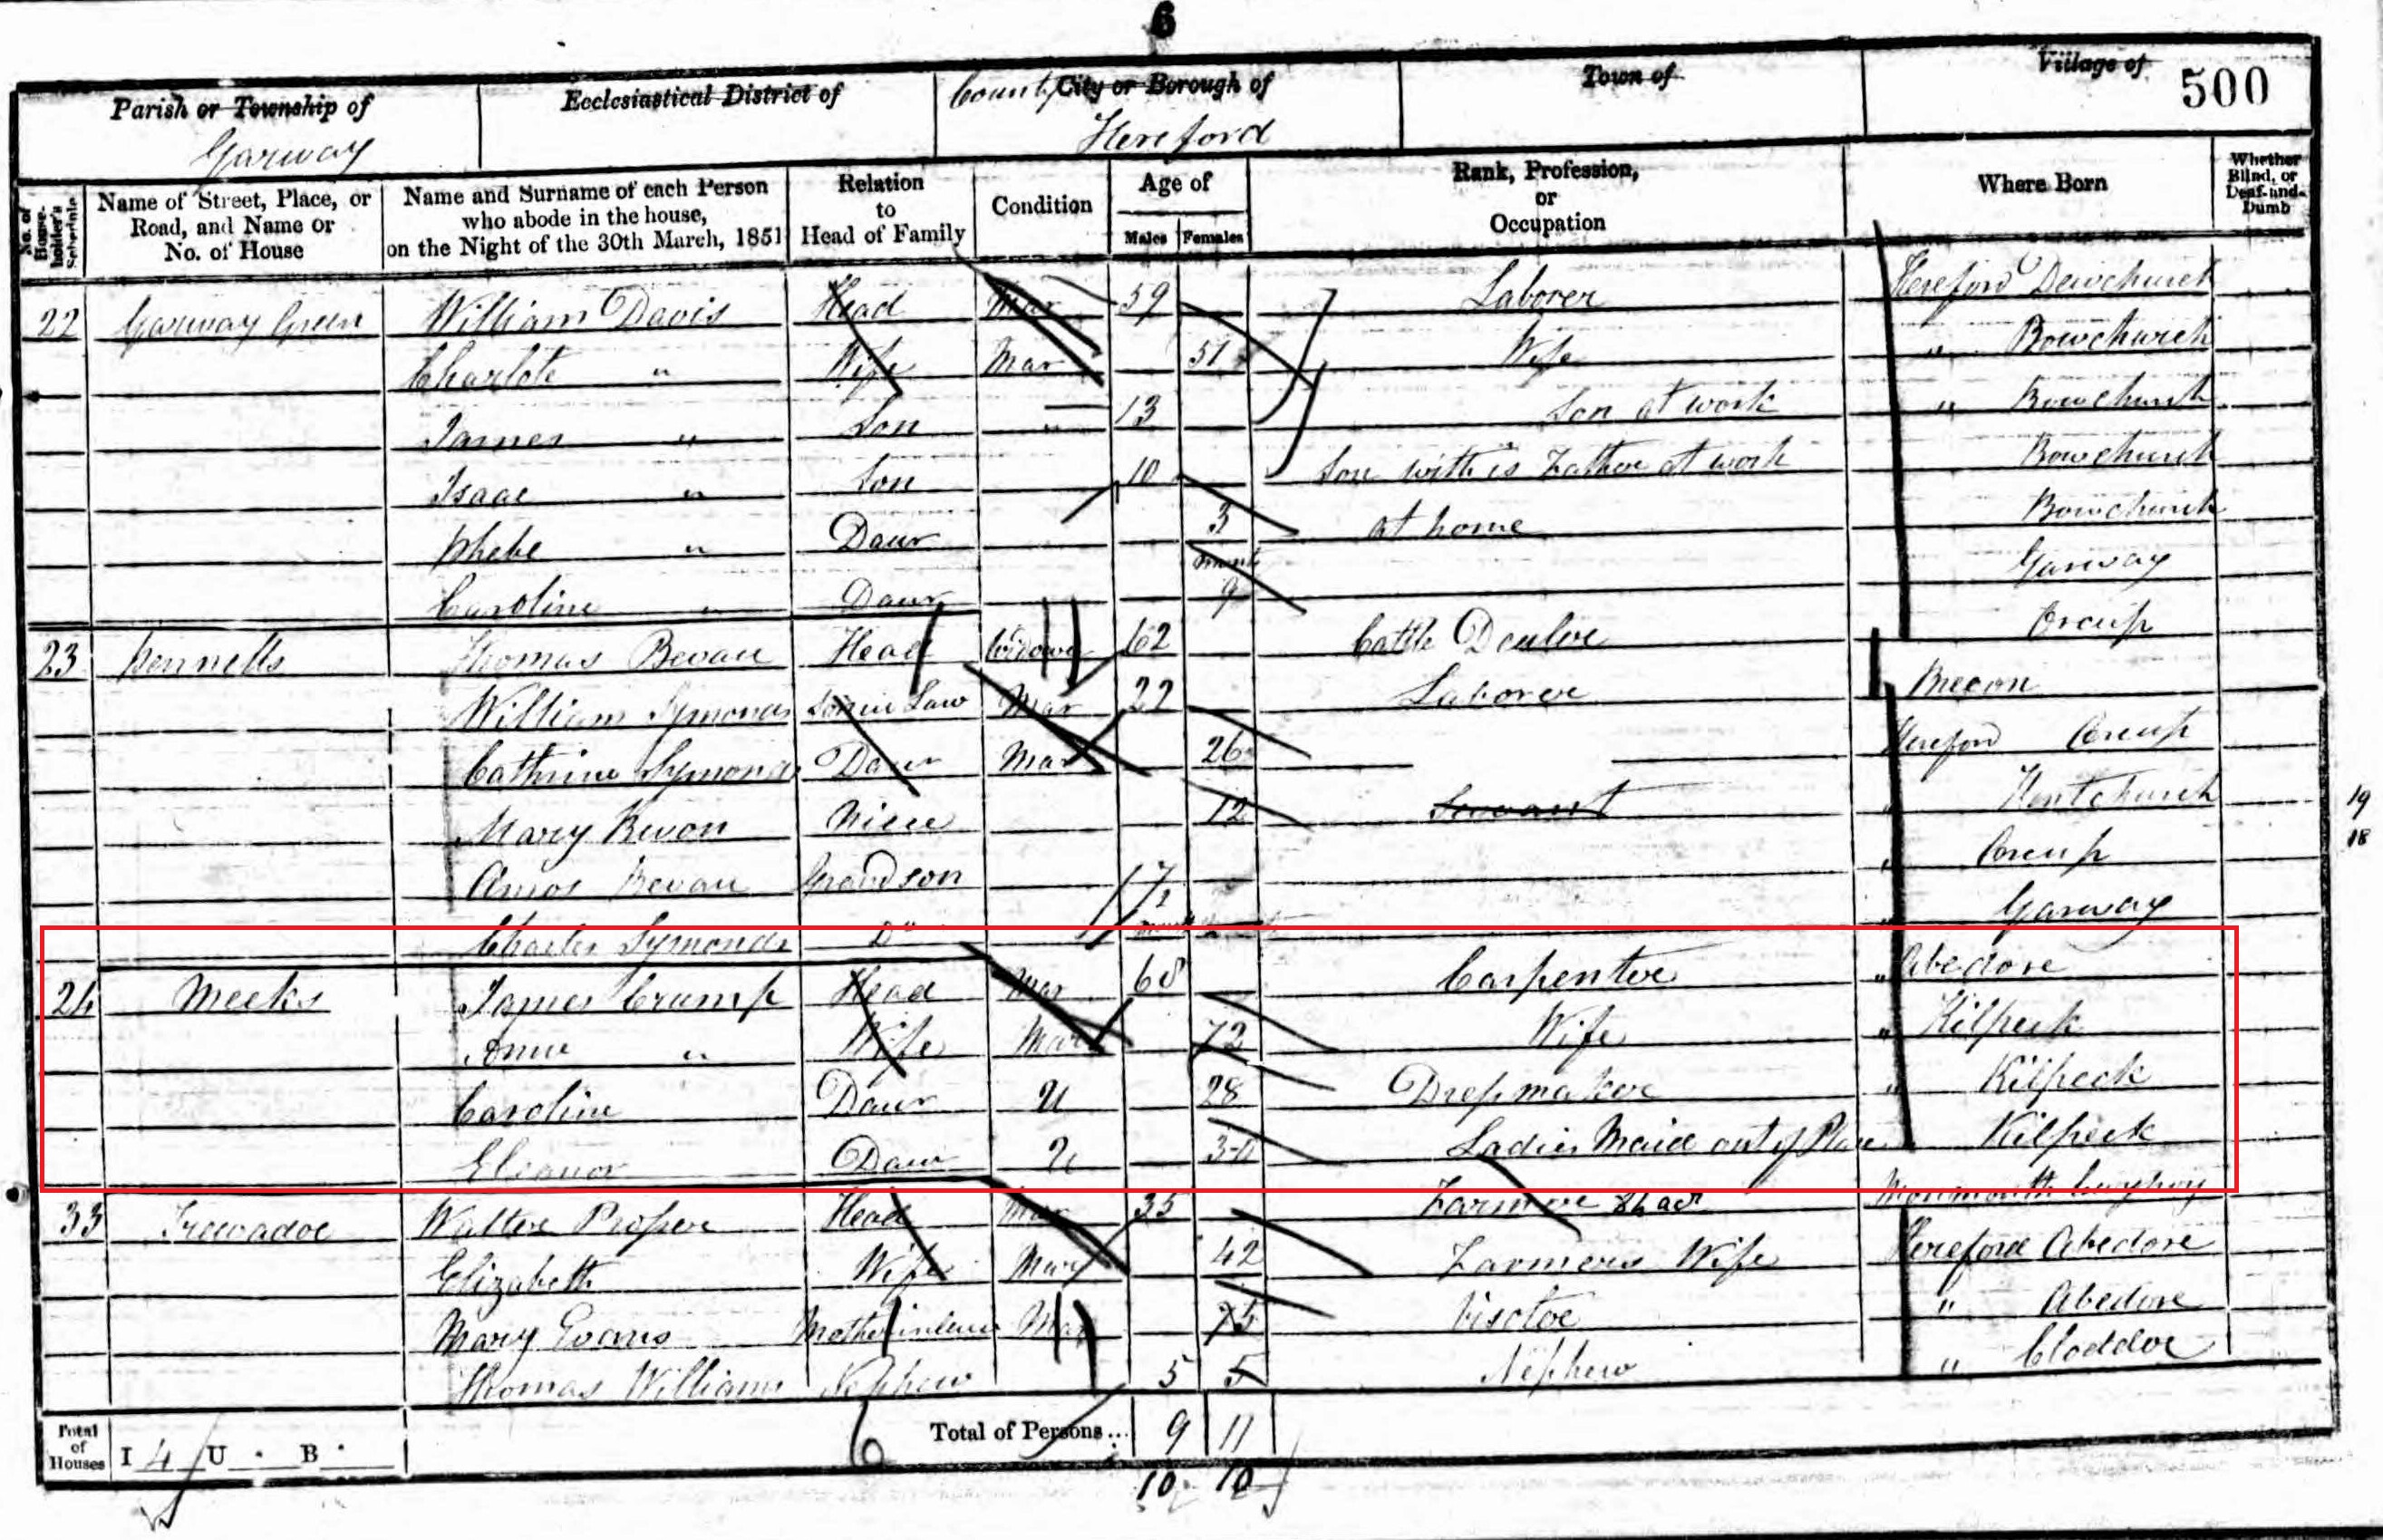 6
Parish or Township of
Garway
Ecclesiastical District of
County City or Borough of
Hereford
Town of
Village of
500
No. of House-holder's Schedule
Name of Street, Place, or Road, and Name or No. of House
Name and Surname of each Person who abode in the house, on the Night of the 30th March, 1851
Relation to Head of Family
Condition
Age of
Males Females
Rank, Profession, or Occupation
Where Born
Whether Blind, or Deaf-and-Dumb
22 Garway Green William Davis Head Mar 59 Laborer Hereford Dewchurch
Charlote " Wife Mar 51 Wife " Bowchurch
James " Son " 13 Son at work " Bowchurch
Isaac " Son 10 Son with is Father at work Bowchurch
Phebe " Daur 3 at home Bowchurch
Caroline " Daur 9 Garway
23 Thomas Bevan Head Widower 62 Cattle Dealer Orcup
William Symonds Son in Law Mar 22 Laborer Brecon
Cathrine Symonds Daur Mar 26 Hereford Orcup
Mary Bevon Niece 12 Servant " Kentchurch
Amos Bevan Grandson " Orcup
Charles Symonds Do " Garway
24 Meeks James Crump Head Mar 68 Carpenter " Abedore
Anne " Wife Mar 72 Wife " Kilpeck
Caroline Daur U 28 Dressmaker " Kilpeck
Eleanor Daur U 30 Ladies Maid out of Place " Kilpeck
33 Walter Prosser Head Mar 35 Farmer Monmouth
Elizabeth Wife Mar 42 Farmers Wife Hereford Abedore
Mary Evans Mother in law Mar 75 Visitor " Abedore
Thomas Williams Nephew 5 5 Nephew " Cloddoc
19
18
Total of Houses I 4 U B
6
Total of Persons 9 11
10 10